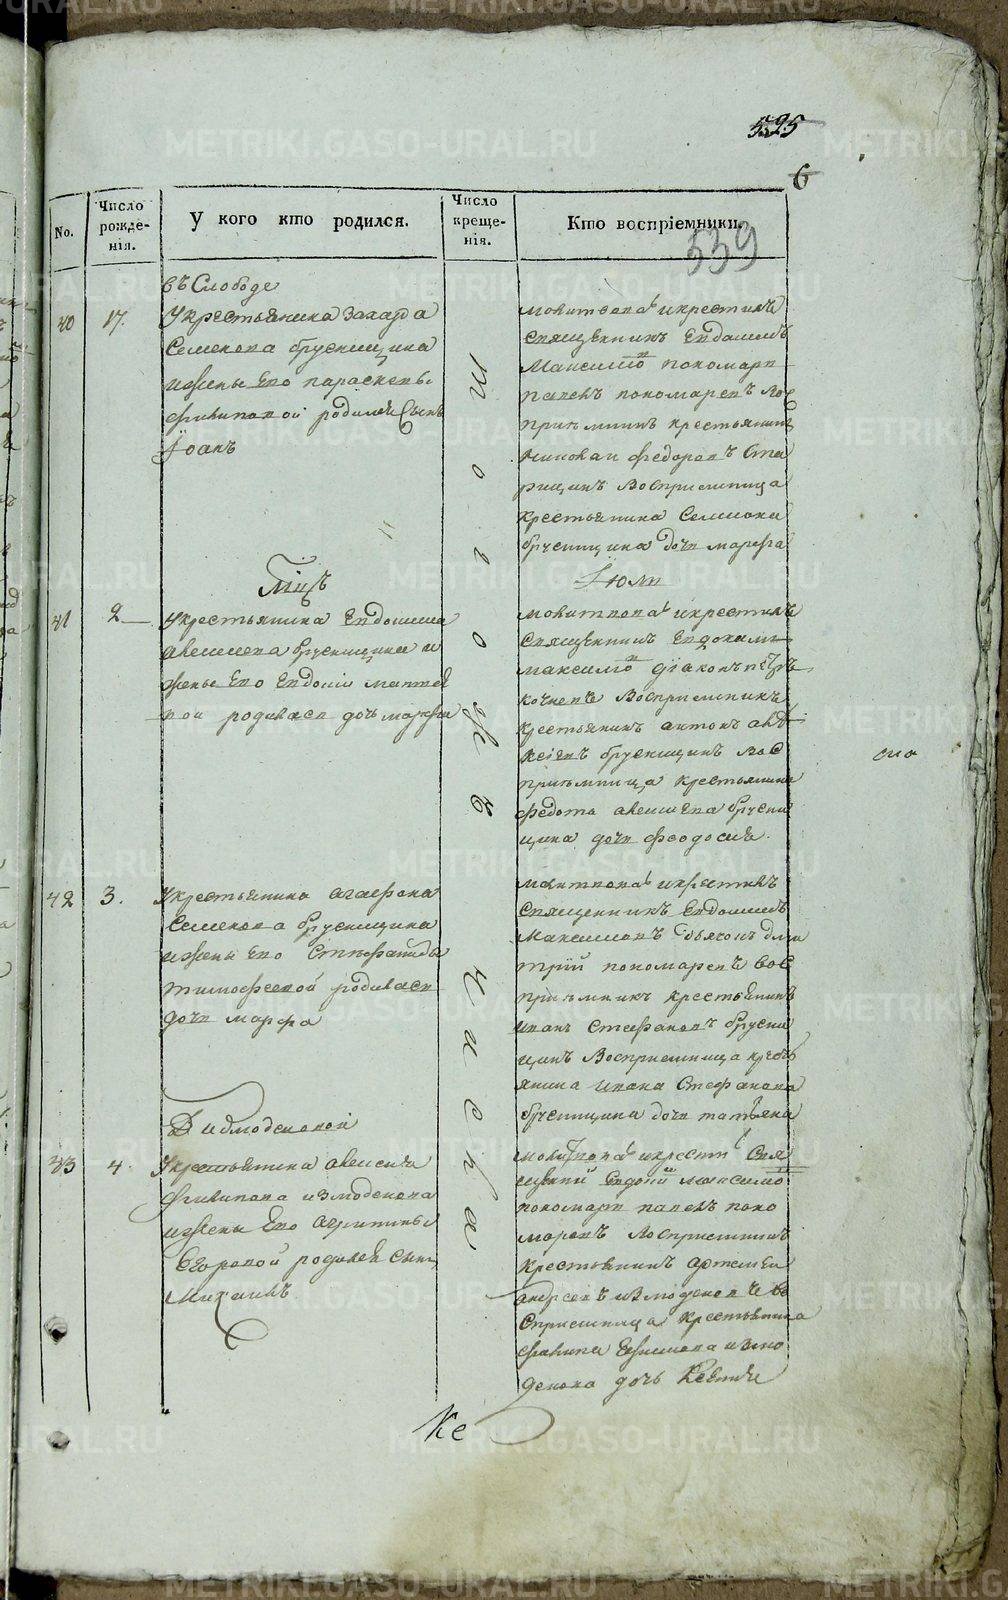 525
6
No.
Число рожде-нія.
У кого кто родился.
Число креще-нія.
Кто воспріемники.
539
въ Слободе
40 17.
Укрестьянина Захара
Семенова брусницина
ижены его параскевы
филиповой родился Сынъ
Іоанъ
молитвова икрестилъ
Священникъ Евдокимъ
Максимо пономарь
павелъ пономаревъ Вос
приемникъ крестьянинъ
федоровъ
Воспрiемница
крестьянина Семиона
брусницина дочь марфа
тогожъ числа
Мцъ
Іюли
41 2
Укрестьянина Евдокима
авексиева брусницина и
жены его Евдокiи матвее
вой родилася дочь марфа
молитвова икрестилъ
Священникъ Евдокимъ
максимо діаконъ петръ
кочневъ Воспрiемникъ
крестьянинъ антонъ авѣ
ксіевъ брусницинъ вос
приемница крестьянина
федота авексиева брусни
цина дочь феодосия
42 3.
Укрестьянина агафона
Семенова брусницина
ижены его Стефаниды
тимофеевой родилася
дочь марфа
молитвова икрестилъ
Священникъ Евдокимъ
Максимовъ дьячокъ дми
трїй пономаревъ Вос
приемникъ крестьянинъ
иванъ стефановъ брусни
цинъ Воспрiемница крест
янина ивана Стефанова
брусницина дочь татьяна
Д измоденовой
43 4.
Укрестьянина авексия
филипова измоденова
ижены его агрипины
Егоровой родился сынъ
Михаилъ
молитвова икрести Свя
щенни Евдоки максимо
пономарь павелъ поно
маревъ Воспрiемникъ
крестьянинъ артемеи
андреевъ измоденовъ во
спрiемница крестьянина
филипа Ефимова измо
денова дочь Ксения
Ке